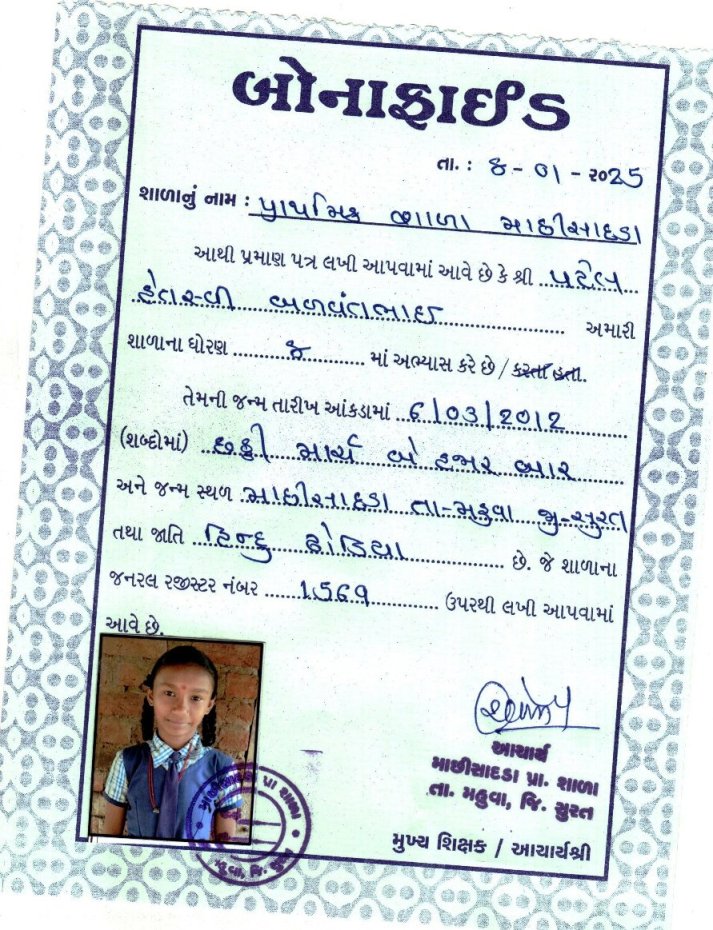 બોનાફાઈડ
તા. : ૪ - ૦૧ - ૨૦25
શાળાનું નામ : પ્રાથમિક શાળા માછીસાદડા
આથી પ્રમાણ પત્ર લખી આપવામાં આવે છે કે શ્રી ..પટેલ...
હેતસ્વી બળવંતભાઈ ........................ અમારી
શાળાના ધોરણ ...........૪............ માં અભ્યાસ કરે છે / કરતા હતા.
તેમની જન્મ તારીખ આંકડામાં ..6/03/2012..............
(શબ્દોમાં) ..છઠ્ઠી માર્ચ બે હજાર બાર............
અને જન્મ સ્થળ .માછીસાદડા તા-મહુવા જી-સુરત
તથા જાતિ ...હિન્દુ ઢોડિયા.................... છે. જે શાળાના
જનરલ રજીસ્ટર નંબર ........1569.............. ઉપરથી લખી આપવામાં
આવે છે.
આચાર્ય
માછીસાદડા પ્રા. શાળા
તા. મહુવા, જિ. સુરત
મુખ્ય શિક્ષક / આચાર્યશ્રી
માછીસાદડા પ્રા શાળા